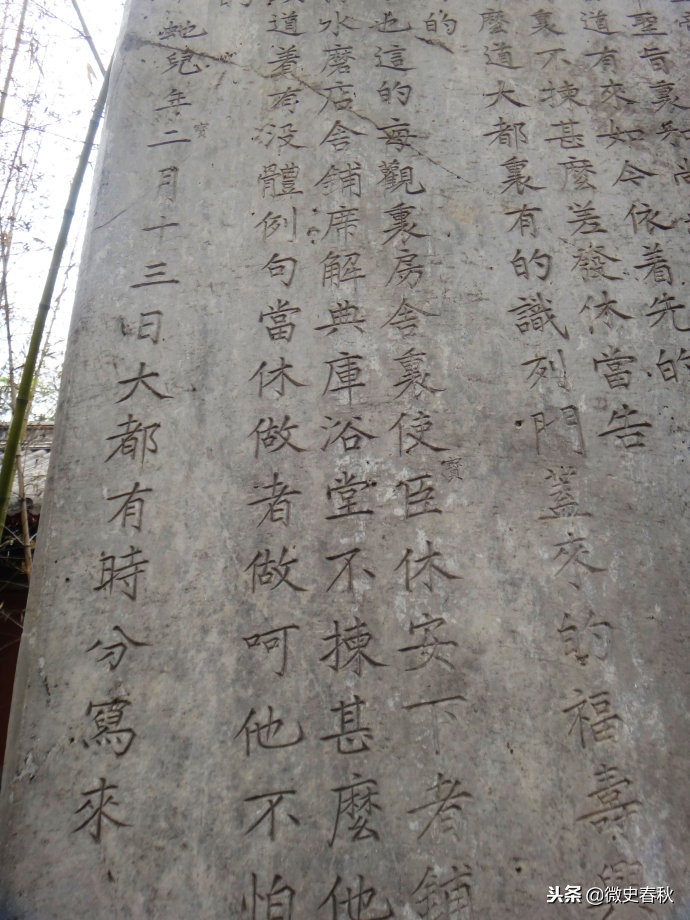 聖旨裏和尚
道有來如今依着先的
裏不揀甚麼差發休當告
麼道大都裏有的識列門蓋來的福壽興
的
也這的每觀裏房舍裏使臣休安下者鋪
寶
水磨店舍鋪席解典庫浴堂不揀甚麼他
道着有没體例句當休做者做呵他不怕
的
寶
蛇兒年二月十三日大都有時分寫來
头条 @微史春秋